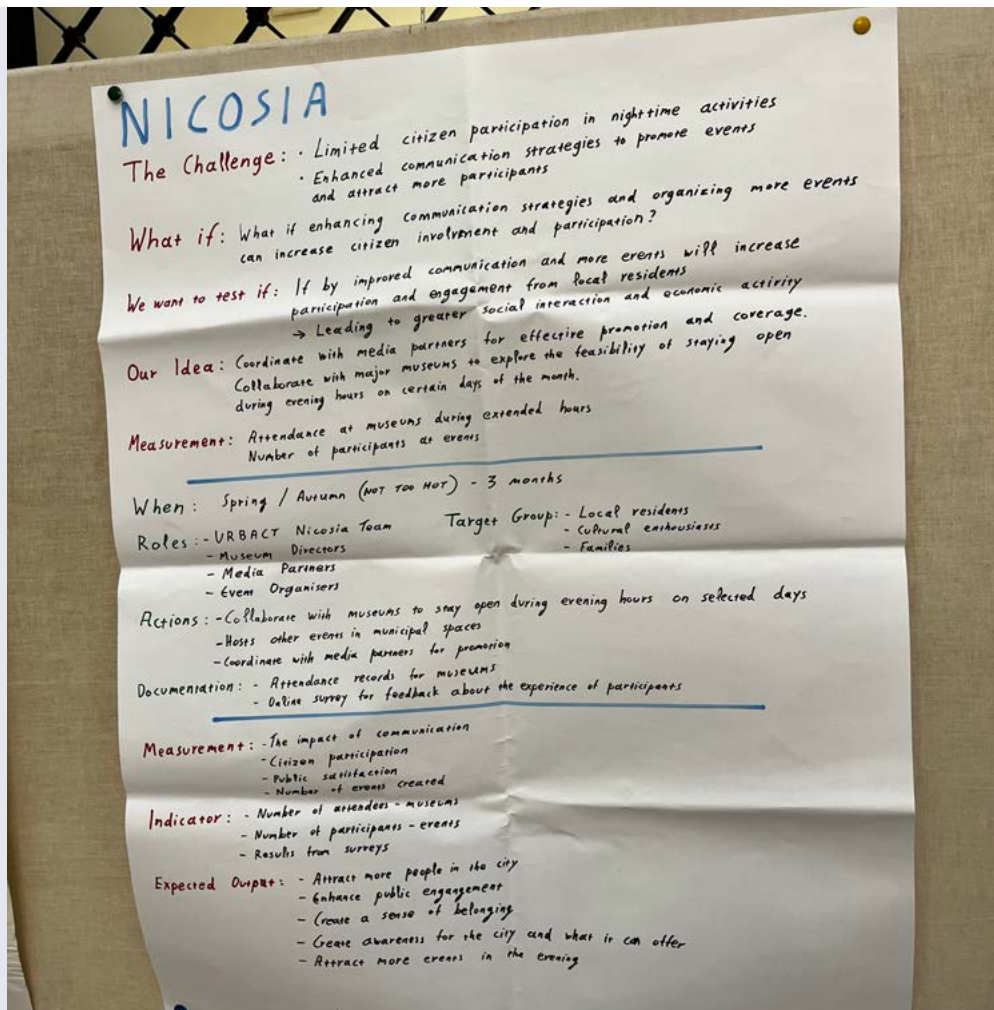 NICOSIA
The Challenge: · Limited citizen participation in nighttime activities
· Enhanced communication strategies to promote events
and attract more participants
What if: What if enhancing communication strategies and organizing more events
can increase citizen involvment and participation?
We want to test if: If by improved communication and more events will increase
participation and engagement from local residents
→ Leading to greater social interaction and economic activity
Our Idea: Coordinate with media partners for effective promotion and coverage.
Collaborate with major museums to explore the feasibility of staying open
during evening hours on certain days of the month.
Measurement: Attendance at museums during extended hours
Number of participants at events
When: Spring / Autumn (NOT TOO HOT) - 3 months
Roles: - URBACT Nicosia Team
- Museum Directors
- Media Partners
- Event Organisers
Target Group: - Local residents
- Cultural enthousiases
- Families
Actions: - Collaborate with museums to stay open during evening hours on selected days
- Hosts other events in municipal spaces
- Coordinate with media partners for promotion
Documentation: - Attendance records for museums
- Online survey for feedback about the experience of participants
Measurement: - The impact of communication
- Citizen participation
- Public satisfaction
- Number of events created
Indicator: - Number of attendees - museums
- Number of participants - events
- Results from surveys
Expected Output: - Attract more people in the city
- Enhance public engangement
- Create a sense of belonging
- Create awareness for the city and what it can offer
- Attract more events in the evening